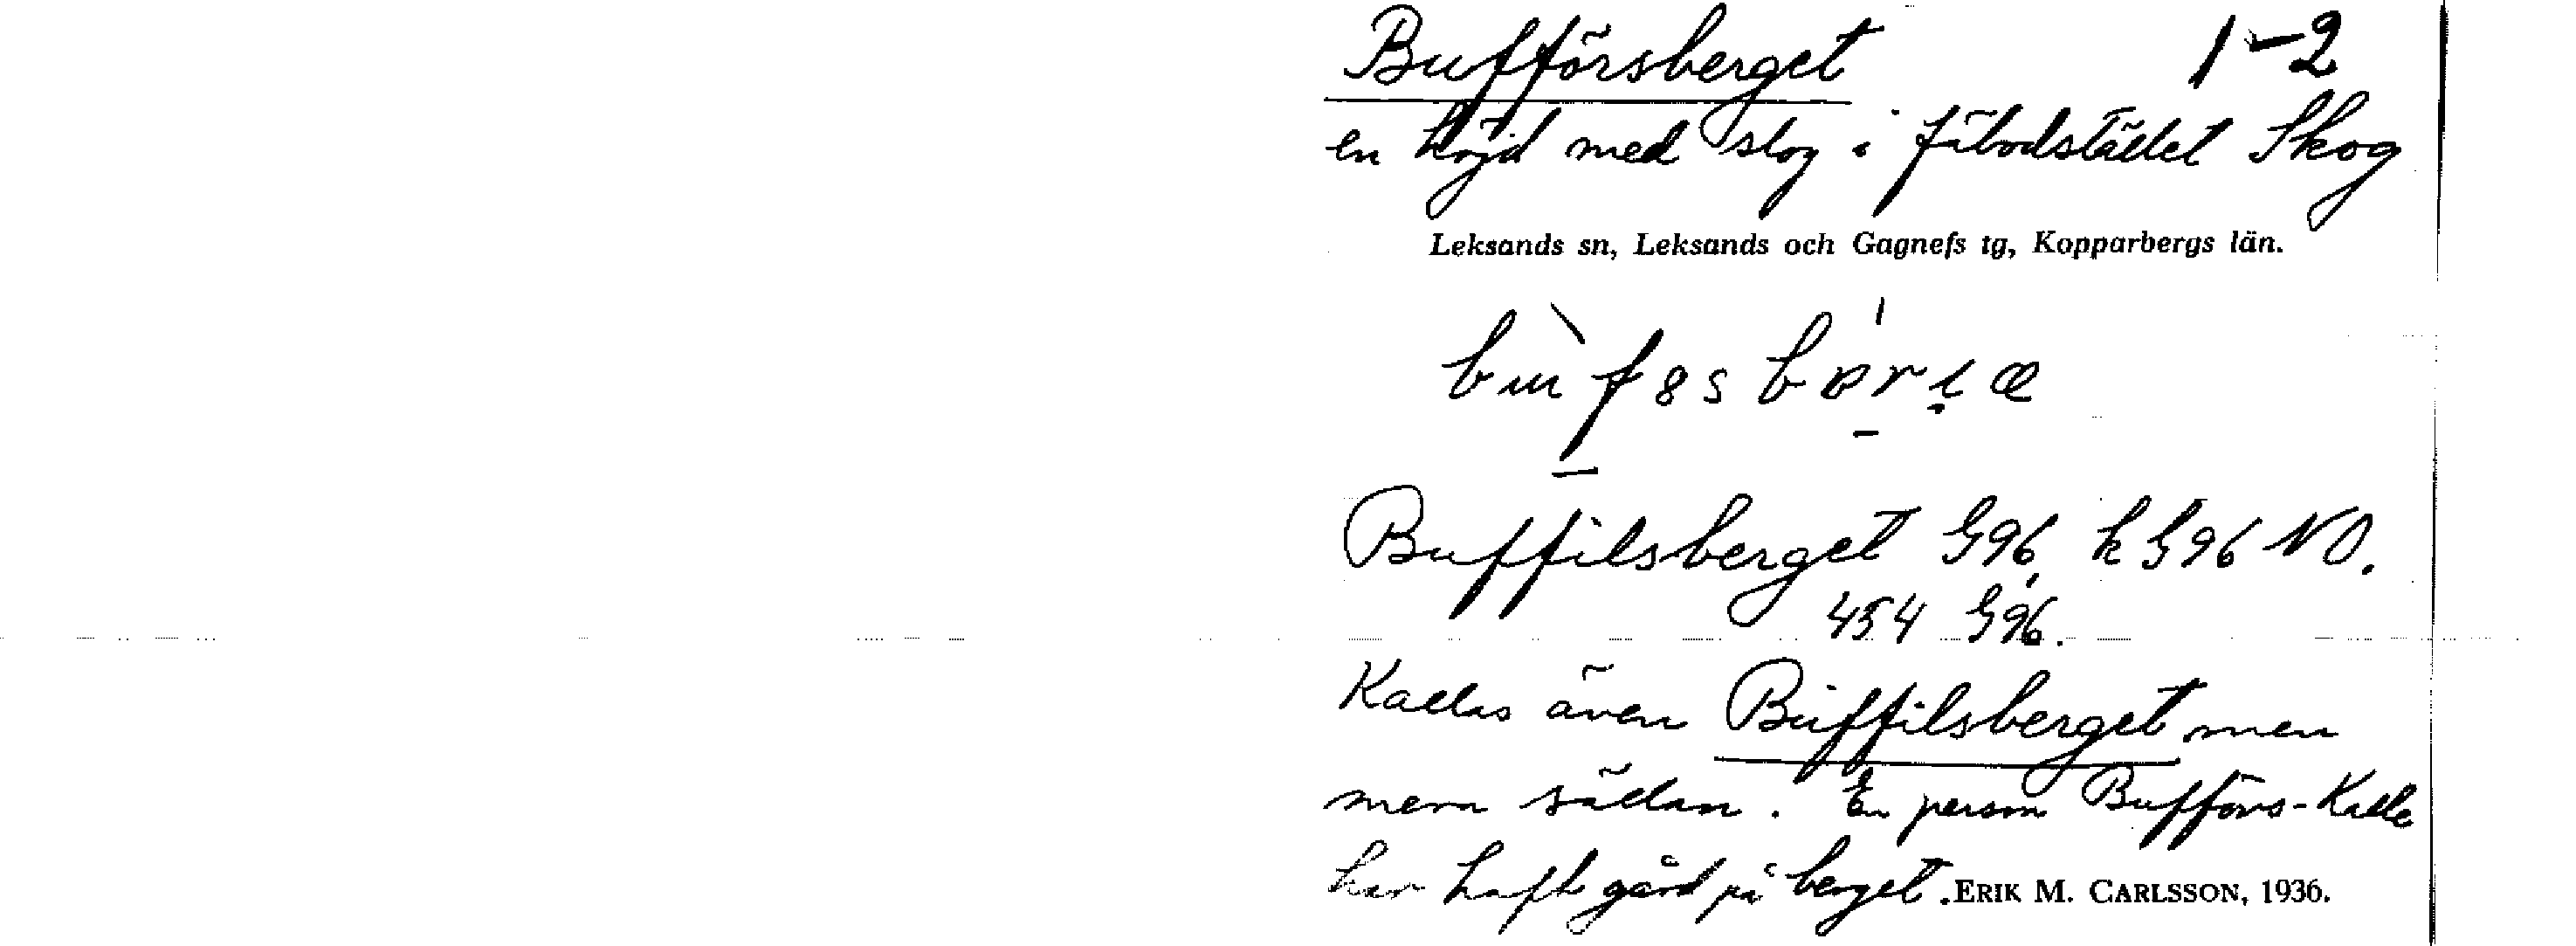 Bufförsberget 1-2
en höjd med slog i fäbodstället Skog
Leksands sn, Leksands och Gagnefs tg, Kopparbergs län.
Buffilsberget G96, k G96 NO.
454 G96.
Kallas även Buffilsberget men
mera sällan. En person Bufförs-Kalle
har haft gård på berget. ERIK M. CARLSSON, 1936.